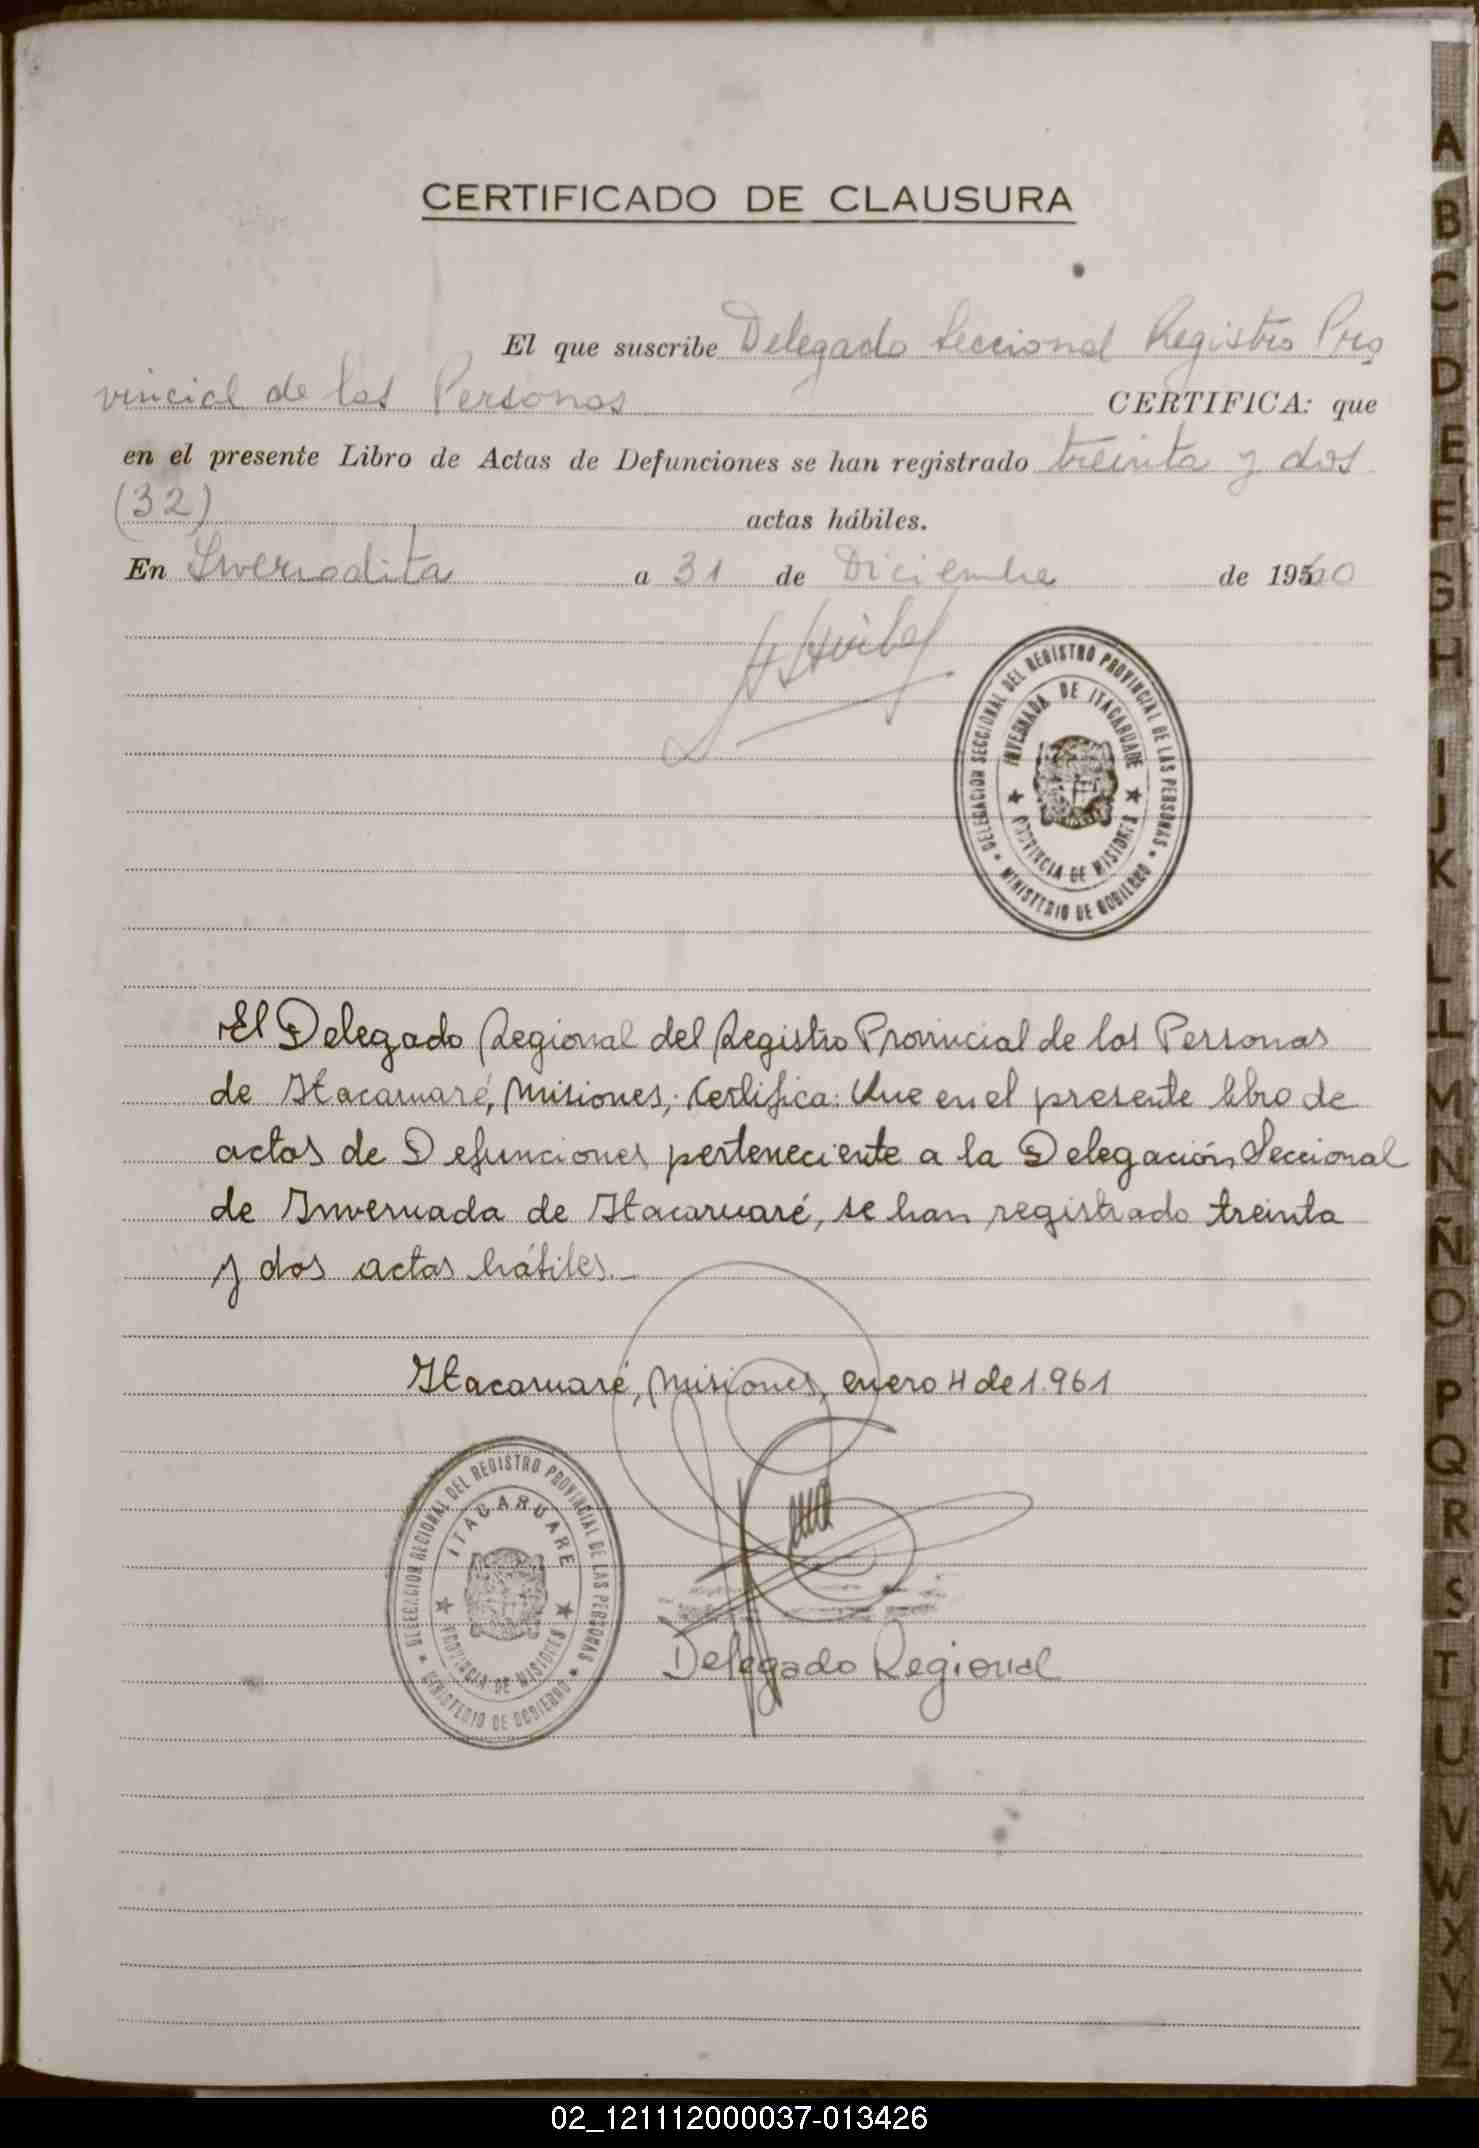 CERTIFICADO DE CLAUSURA
El que suscribe Delegado Seccional Registro Pro
vincial de las Personas CERTIFICA: que
en el presente Libro de Actas de Defunciones se han registrado treinta y dos
(32) actas hábiles.
En Invernadita a 31 de Diciembre de 1960
DELEGACION SECCIONAL DEL REGISTRO PROVINCIAL DE LAS PERSONAS
INVERNADA DE ITACARUARE
PROVINCIA DE MISIONES
MINISTERIO DE GOBIERNO
El Delegado Regional del Registro Provincial de las Personas
de Itacaruaré, Misiones, Certifica: Que en el presente libro de
actas de Defunciones perteneciente a la Delegación Seccional
de Invernada de Itacaruaré, se han registrado treinta
y dos actas hábiles.-
Itacaruaré, Misiones, enero 4 de 1.961
DELEGACION REGIONAL DEL REGISTRO PROVINCIAL DE LAS PERSONAS
ITACARUARE
PROVINCIA DE MISIONES
MINISTERIO DE GOBIERNO
Delegado Regional
A
B
C
D
E
F
G
H
I
J
K
L
LL
M
N
Ñ
O
P
Q
R
S
T
U
V
W
X
Y
Z
02_121112000037-013426